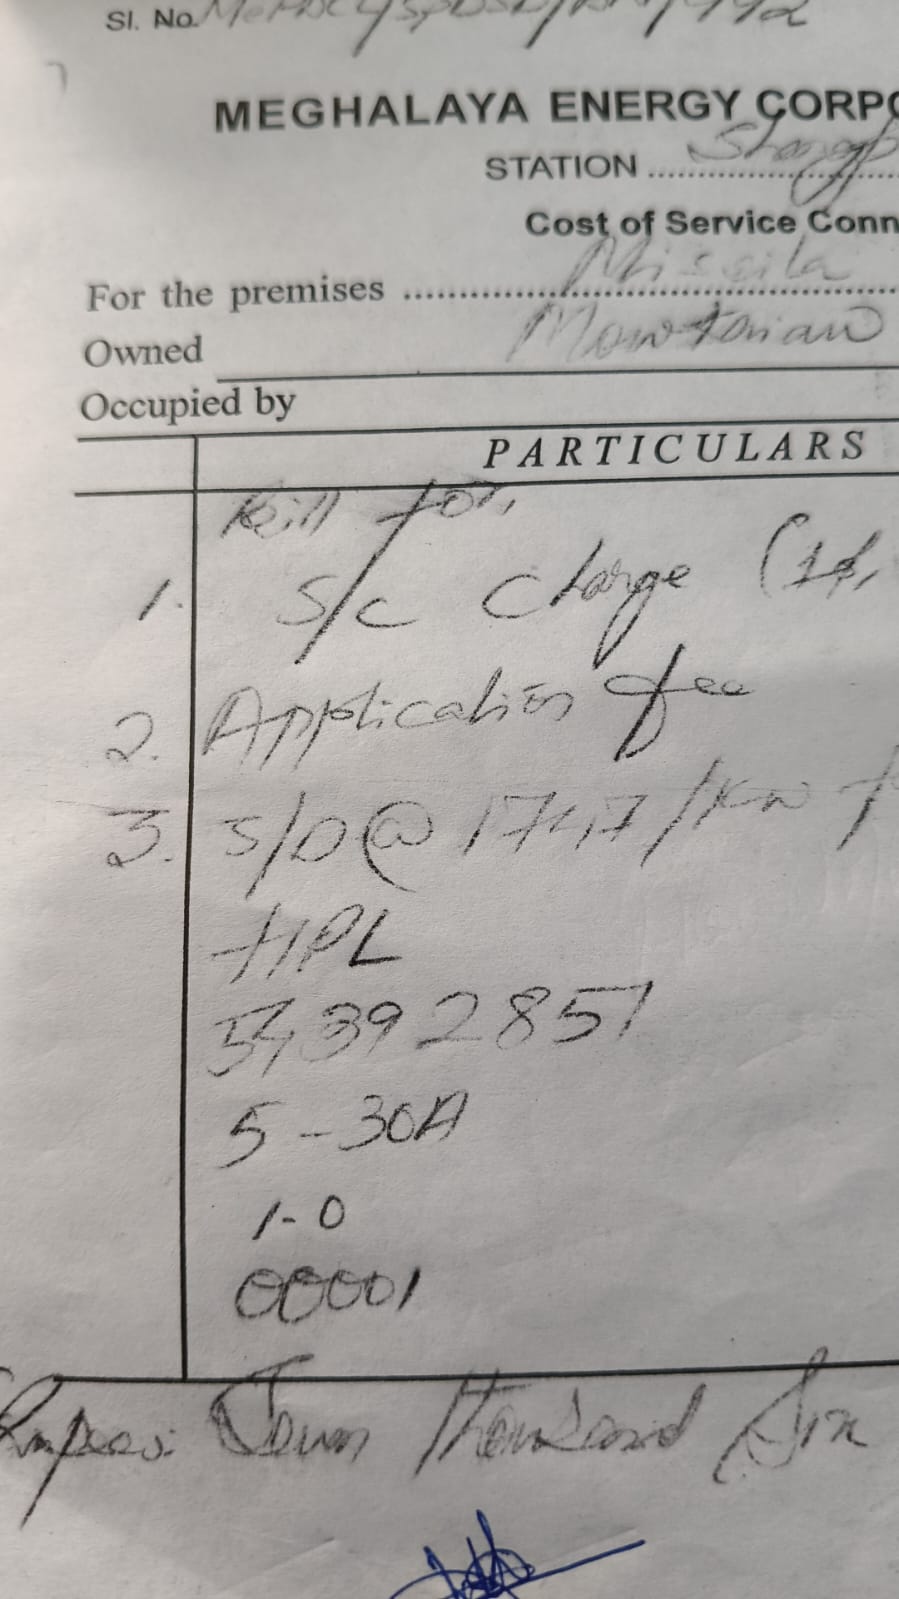 Sl. No.
MEGHALAYA ENERGY CORPO
STATION
Cost of Service Conn
For the premises Missila
Owned Mowtoriaw
Occupied by
PARTICULARS
Bill for,
1. S/C Charge (1ϕ,
2. Application fee
3. S/D @ /Kw
HPL
392857
5-30A
1-0
00001
Rupees: Thousand Six